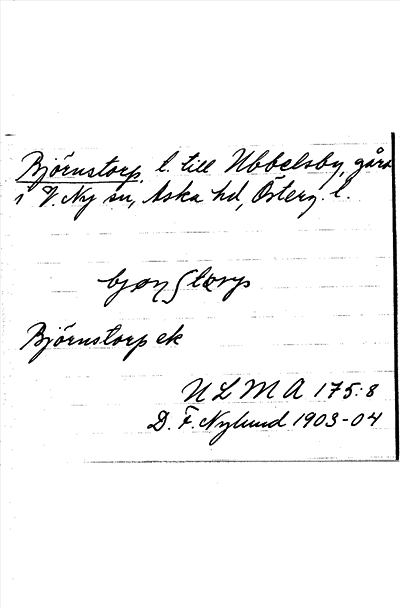 Björnstorp, l. till Ubbelsby, gård
i V. Ny sn, Aska hd, Österg. l.
Björnstorp ek
ULMA 175:8
D. F. Nylund 1903-04